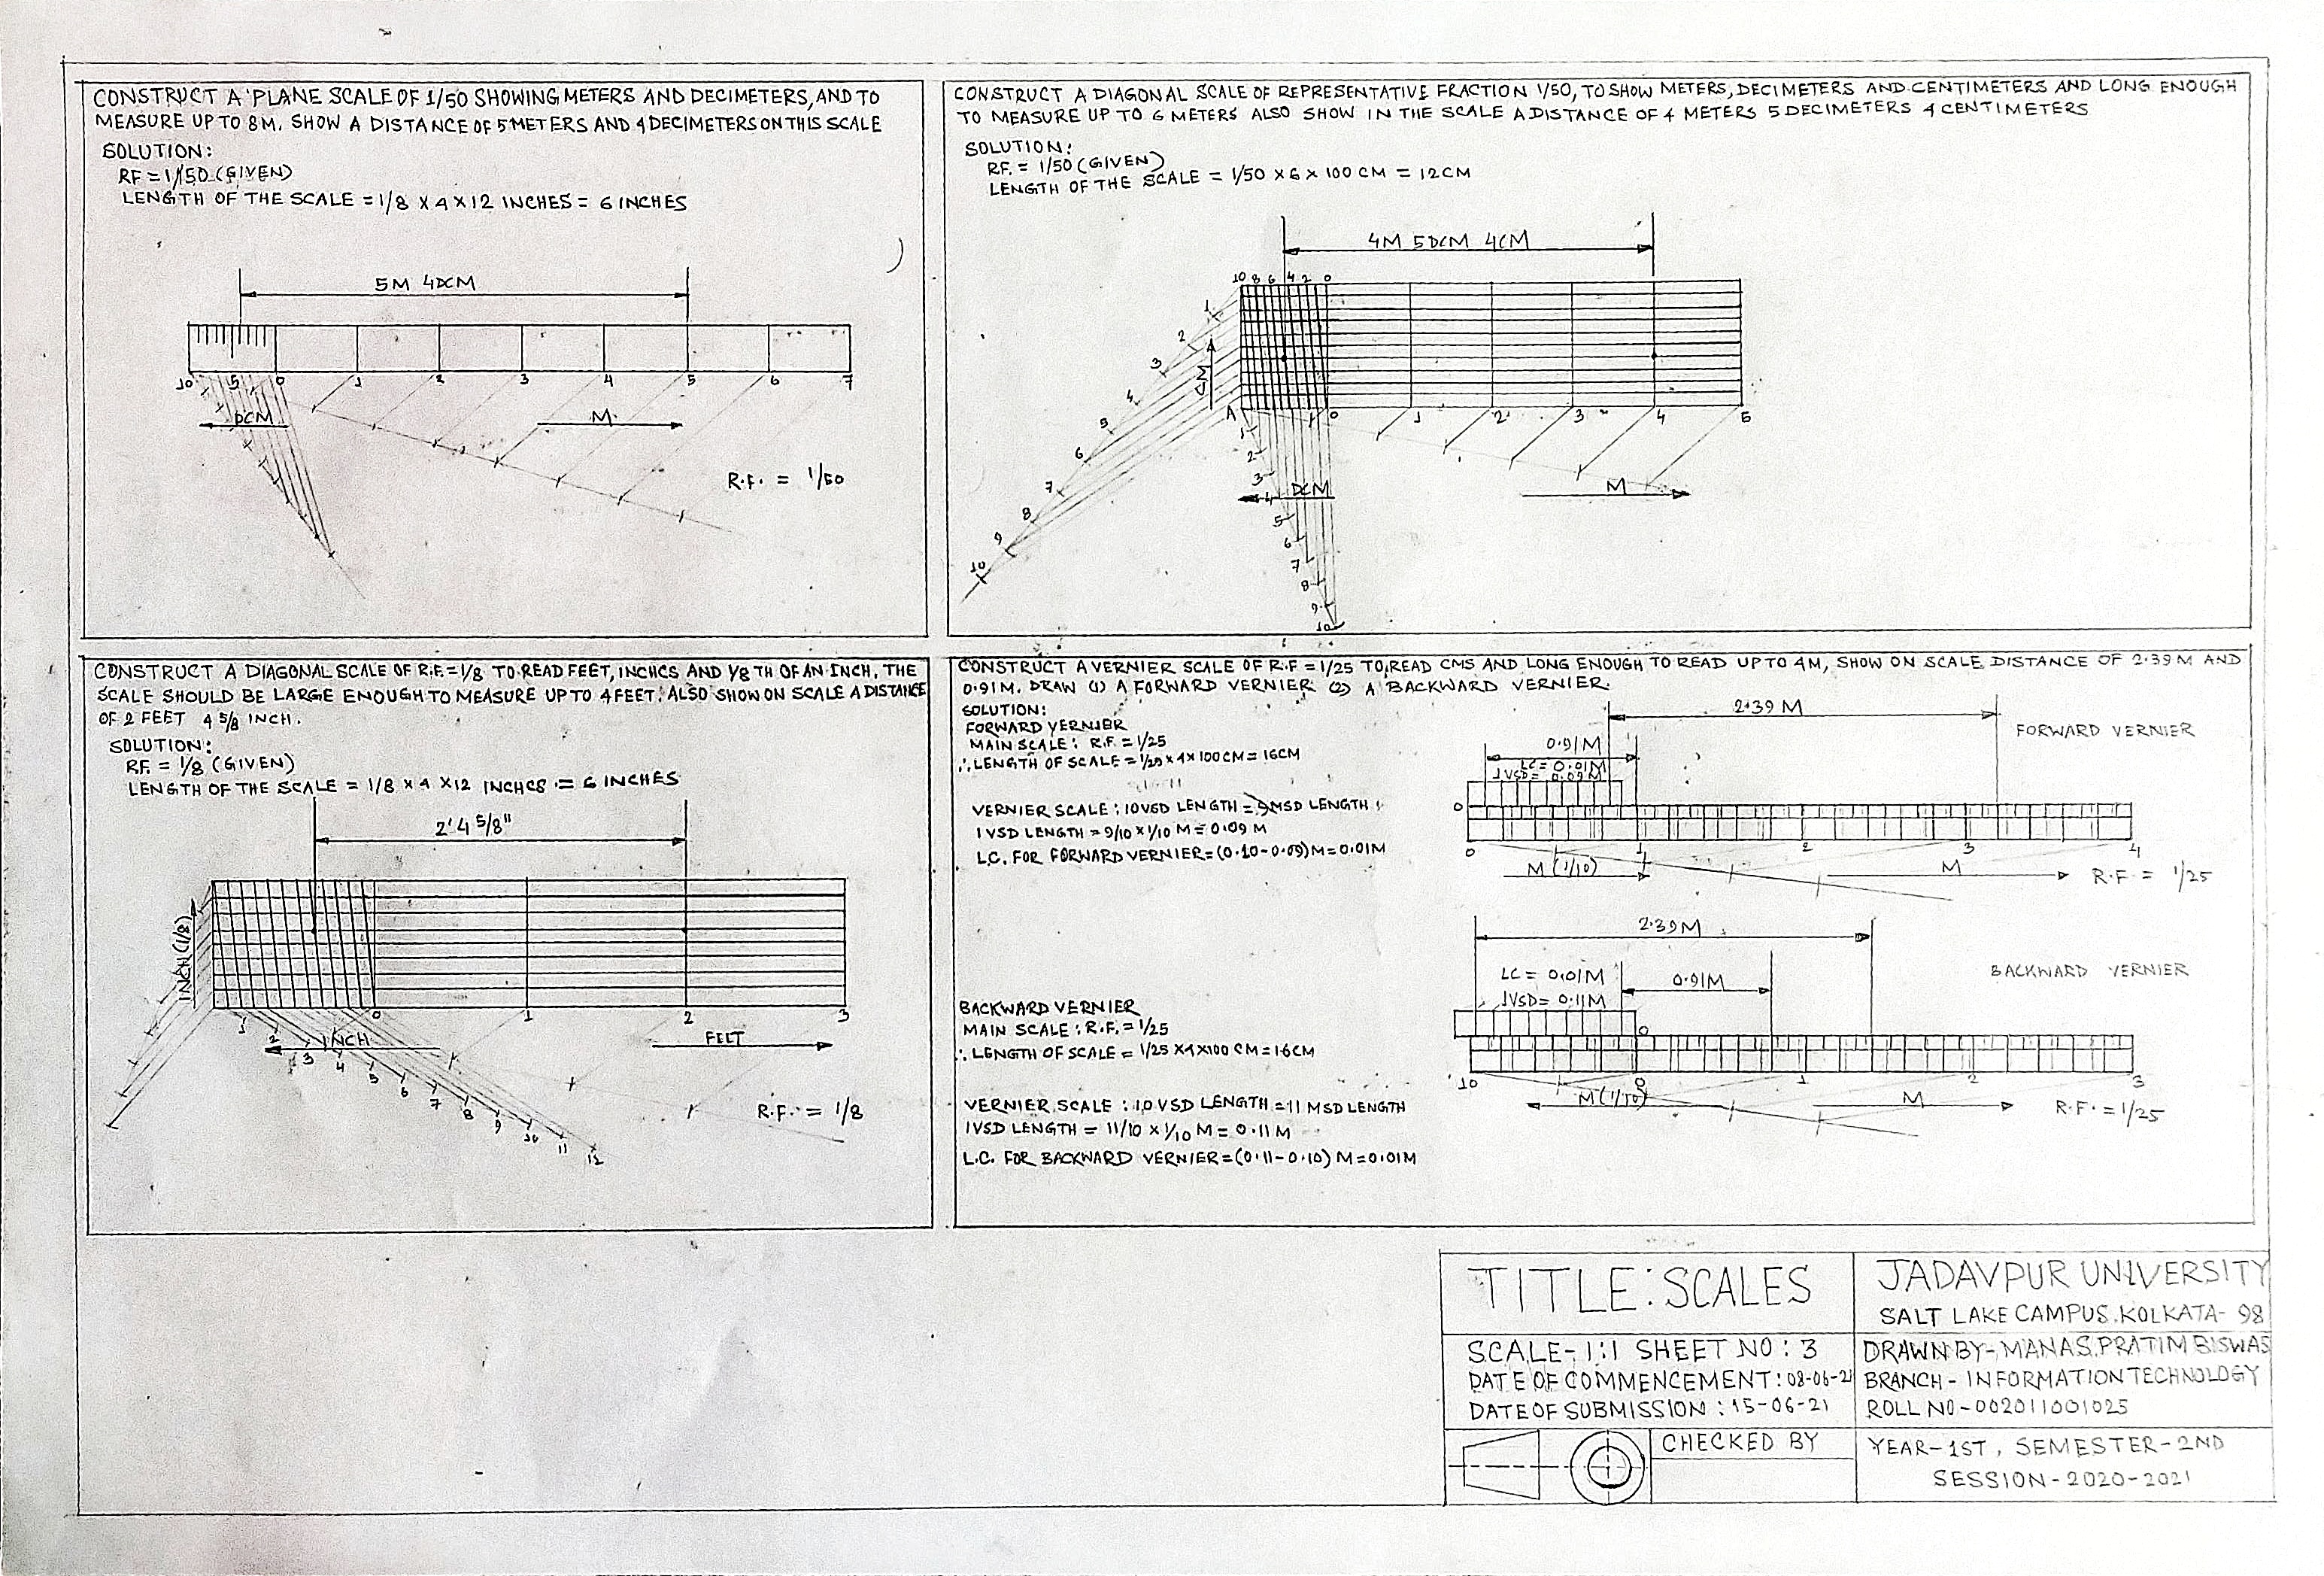 CONSTRUCT A PLANE SCALE OF 1/50 SHOWING METERS AND DECIMETERS, AND TO
MEASURE UP TO 8M. SHOW A DISTANCE OF 5 METERS AND 4 DECIMETERS ON THIS SCALE
SOLUTION:
RF = 1/50 (GIVEN)
LENGTH OF THE SCALE = 1/8 X 4 X 12 INCHES = 6 INCHES
5M 4DCM
10 5 0 1 2 3 4 5 6 7
DCM M
R.F. = 1/50
CONSTRUCT A DIAGONAL SCALE OF REPRESENTATIVE FRACTION 1/50, TO SHOW METERS, DECIMETERS AND CENTIMETERS AND LONG ENOUGH
TO MEASURE UP TO 6 METERS ALSO SHOW IN THE SCALE A DISTANCE OF 4 METERS 5 DECIMETERS 4 CENTIMETERS
SOLUTION:
RF. = 1/50 (GIVEN)
LENGTH OF THE SCALE = 1/50 X 6 X 100 CM = 12CM
4M 5DCM 4CM
10 8 6 4 2 0
1
2
3
4
5
6
7
8
9
10
A
CM
A 1 0 1 2 3 4 5
1
2
3
4
5
6
7
8
9
10
DCM M
CONSTRUCT A DIAGONAL SCALE OF R.F. = 1/8 TO READ FEET, INCHCS AND 1/8 TH OF AN INCH. THE
SCALE SHOULD BE LARGE ENOUGH TO MEASURE UP TO 4 FEET. ALSO SHOW ON SCALE A DISTANCE
OF 2 FEET 4 5/8 INCH.
SOLUTION:
RF. = 1/8 (GIVEN)
LENGTH OF THE SCALE = 1/8 X 4 X 12 INCHCS = 6 INCHES
2' 4 5/8"
INCH (1/8)
0 1 2 3
INCH FELT
1
2
3
4
5
6
7
8
9
10
11
12
R.F. = 1/8
CONSTRUCT A VERNIER SCALE OF R.F = 1/25 TO READ CMS AND LONG ENOUGH TO READ UP TO 4M, SHOW ON SCALE DISTANCE OF 2.39 M AND
0.91M. DRAW (1) A FORWARD VERNIER (2) A BACKWARD VERNIER.
SOLUTION:
FORWARD VERNIER
MAIN SCALE: R.F. = 1/25
∴ LENGTH OF SCALE = 1/25 X 4 X 100 CM = 16CM
VERNIER SCALE: 10VSD LENGTH = 9MSD LENGTH
1 VSD LENGTH = 9/10 X 1/10 M = 0.09 M
L.C. FOR FORWARD VERNIER = (0.10-0.09) M = 0.01M
2.39 M
FORWARD VERNIER
0.91M
LC = 0.01M
1VSD = 0.09M
0
0 1 2 3 4
M (1/10) M
R.F = 1/25
BACKWARD VERNIER
MAIN SCALE: R.F. = 1/25
∴ LENGTH OF SCALE = 1/25 X 4 X 100 CM = 16CM
VERNIER SCALE: 10 VSD LENGTH = 11 MSD LENGTH
1VSD LENGTH = 11/10 X 1/10 M = 0.11 M
L.C. FOR BACKWARD VERNIER = (0.11-0.10) M = 0.01M
2.39M
BACKWARD VERNIER
LC = 0.01M
1VSD = 0.11M
0.91M
0
10 0 1 2 3
M (1/10) M
R.F. = 1/25
TITLE: SCALES
SCALE- 1:1 SHEET NO: 3
DATE OF COMMENCEMENT: 08-06-21
DATE OF SUBMISSION: 15-06-21
CHECKED BY
JADAVPUR UNIVERSITY
SALT LAKE CAMPUS. KOLKATA- 98
DRAWN BY- MANAS PRATIM BISWAS
BRANCH - INFORMATION TECHNOLOGY
ROLL NO - 002011001025
YEAR-1ST, SEMESTER-2ND
SESSION - 2020-2021